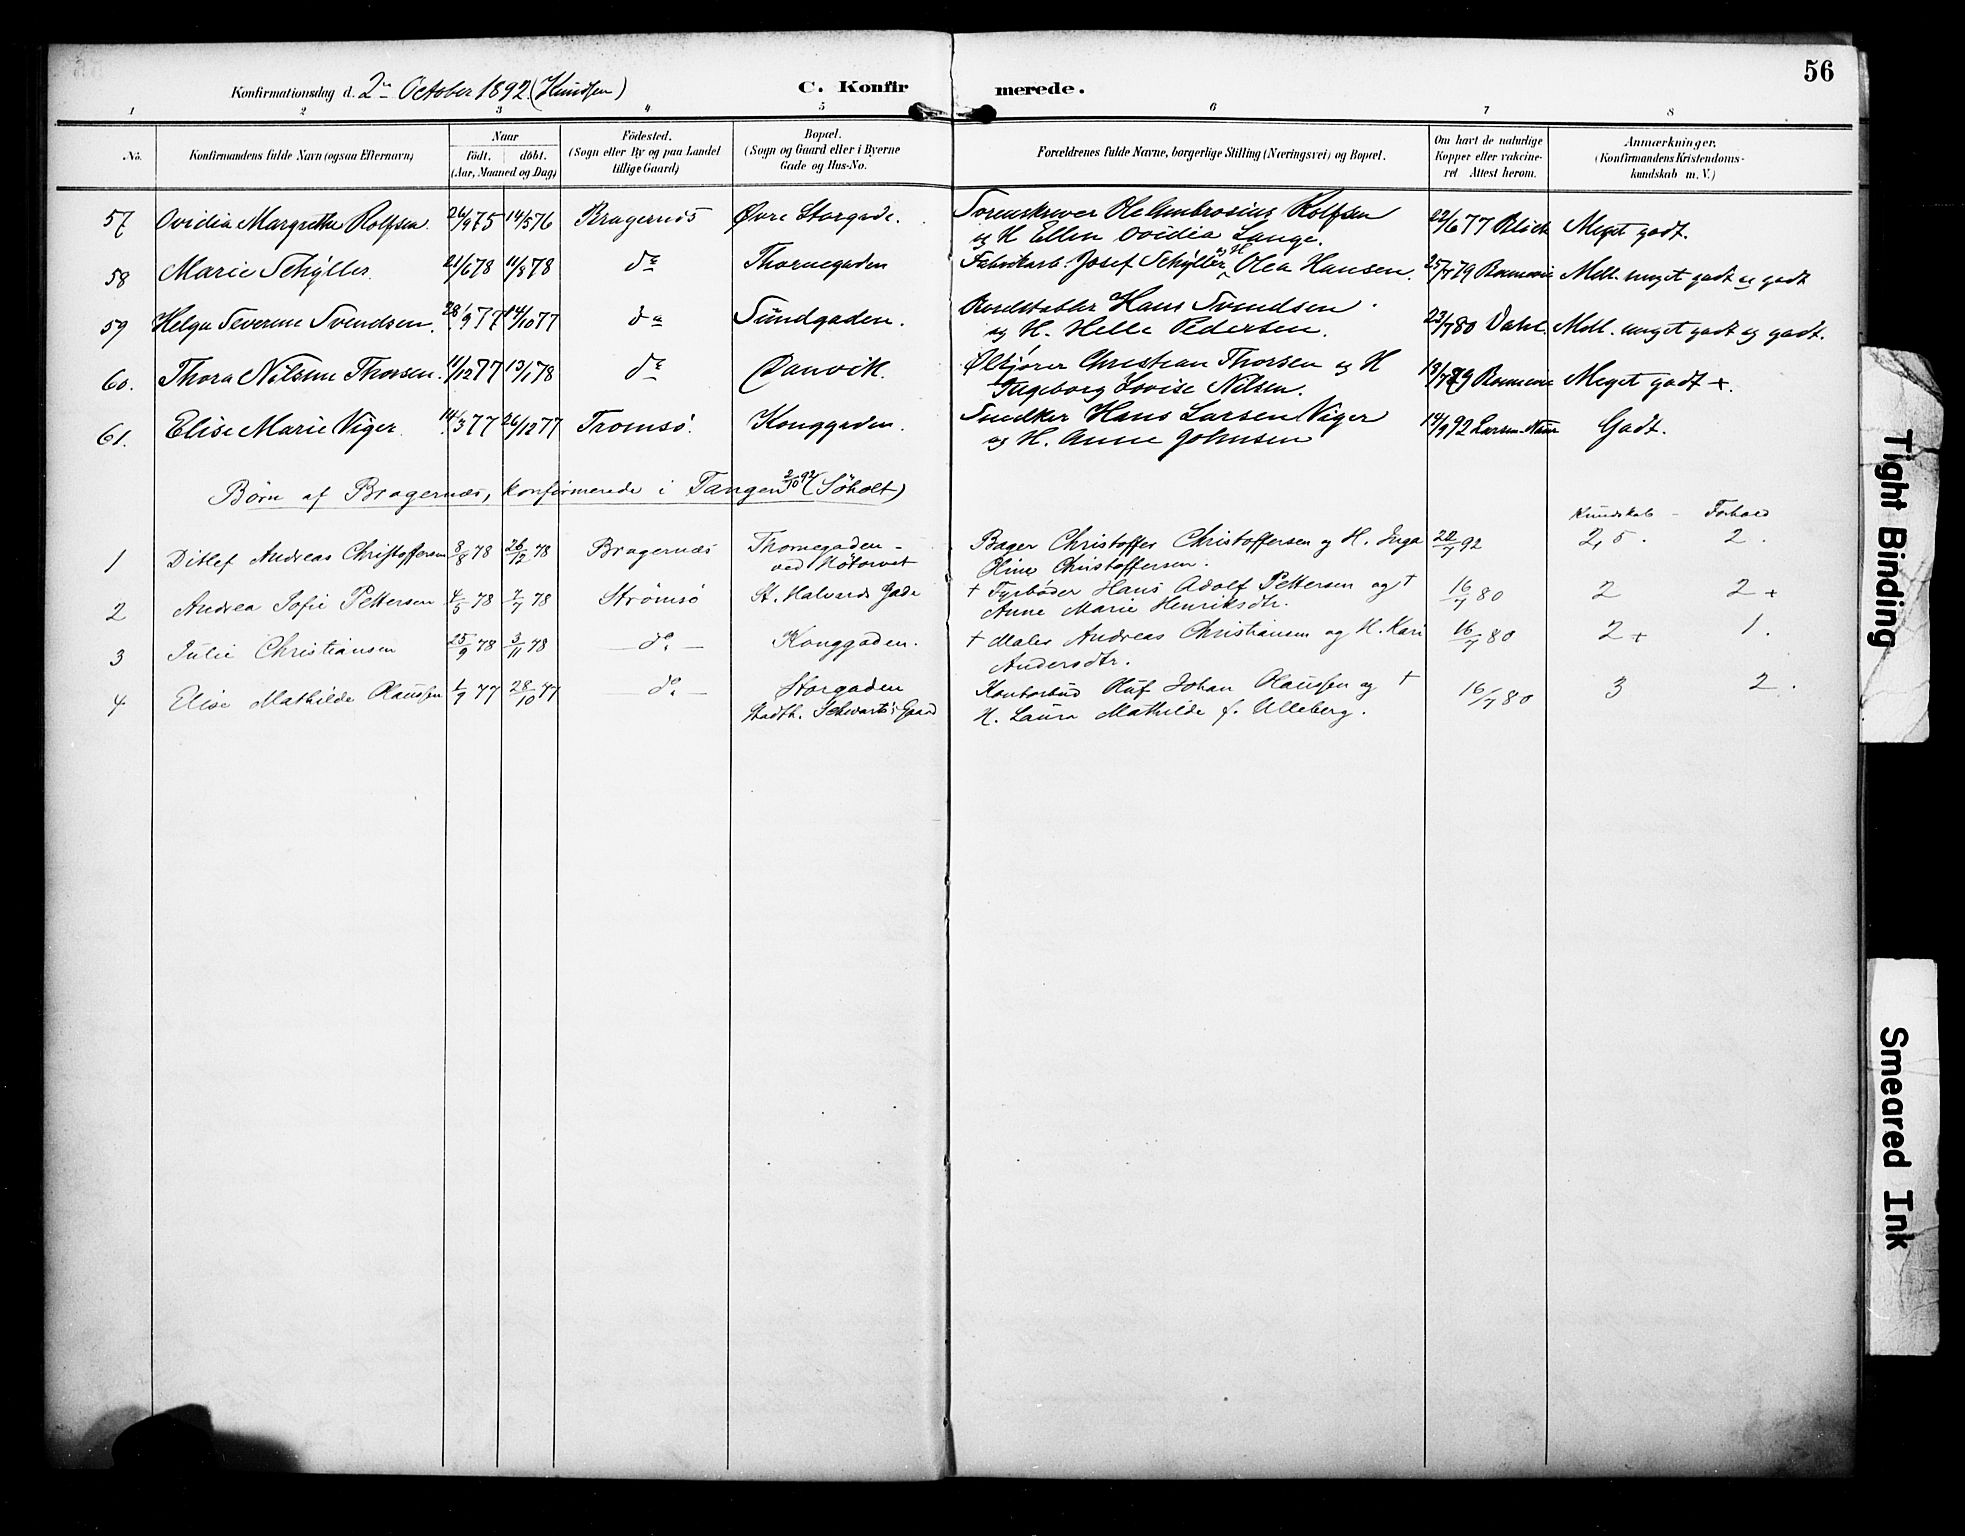 56
Konfirmationsdag d. 2den October 1892. (Knudsen) C. Konfirmerede.
1 2 3 4 5 6 7 8
No. Konfirmandens fulde Navn (ogsaa Efternavn) Naar Födt. döbt. (Aar, Maaned og Dag) Födested. (Sogn eller By og paa Landet tillige Gaard) Bopæl. (Sogn og Gaard eller i Byerne Gade og Hus-No. Forældrenes fulde Navne, borgerlige Stilling (Næringsvei) og Bopæl. Om havt de naturlige Kopper eller vakcineret Attest herom. Anmærkninger. (Konfirmandens Kristendomskundskab m. V.)
57 Ovidia Margrethe Rolfsen. 26/9 75 14/5 76 Bragernæs Øvre Storgade. Sorenskriver Ole Ambrosius Rolfsen og H Ellen Ovidia Lange. 22/6 77 Meget godt.
58 Marie Schÿller. 21/6 78 11/8 78 do Thornegaden Fabrikarb. Josef Schÿller og H Olea Hansen. 25/7 79 Mell. meget godt og godt
59 Helga Severine Svendsen. 28/9 77 14/10 77 do Sundgaden. Hans Svendsen og H. Helle Pedersen. 23/7 80 Vahl. Mell. meget godt og godt.
60. Thora Nilsine Thorsen. 11/12 77 13/1 78 do Danvik Ølkjører Christian Thorsen og H Ingeborg Lovise Nilsen. 18/7 79 Meget godt +.
61. Elise Marie Viger. 14/3 77 26/12 77 Tromsö. Konggaden. Snedker Hans Larsen Viger og H. Anne Johnsen 14/9 92 Godt.
Børn af Bragernæs, konfirmerede i Tangen 2/10 92 (Söholt)
Kundskab - Forhold
1 Ditlef Andreas Christoffersen 8/8 78 26/12 78 Bragernæs Thornegaden - ved Høtorvet Bager Christoffer Christoffersen og H. Inga Oline Christoffersen. 22/7 92 2,5. 2.
2 Andrea Sofie Pettersen 4/5 78 7/7 78 Strömsö St. Halvards Gade + Fyrböder Hans Adolf Pettersen og + Anne Marie Henriksdtr. 16/7 80 2 2+
3 Julie Christiansen 25/9 78 3/11 78 - do. - Konggaden. + Maler Andreas Christiansen og H. Kari Andersdtr. 16/7 80 2+ 1.
4 Elise Mathilde Olaussen 1/9 77 28/10 77 - do. - Storgaden Stadth. Schwartz's Gaard Kontorbud Oluf Johan Olaussen og + H. Laura Mathilde f. Ulleberg. 16/7 80 3 2.
Tight Binding
Smeared Ink